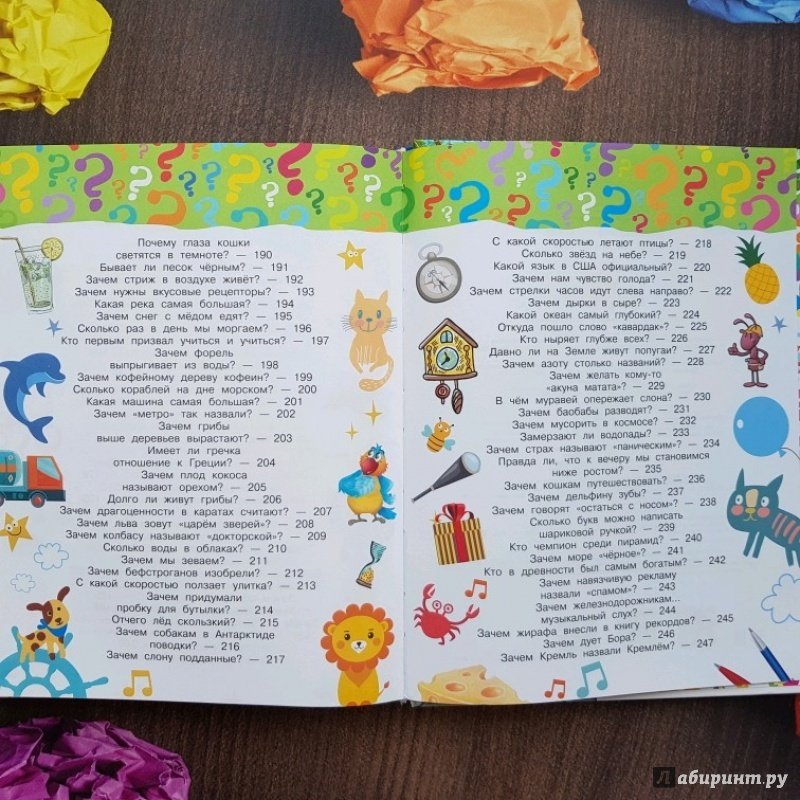 Почему глаза кошки
светятся в темноте? — 190
Бывает ли песок чёрным? — 191
Зачем стриж в воздухе живёт? — 192
Зачем нужны вкусовые рецепторы? — 193
Какая река самая большая? — 194
Зачем снег с мёдом едят? — 195
Сколько раз в день мы моргаем? — 196
Кто первым призвал учиться и учиться? — 197
Зачем форель
выпрыгивает из воды? — 198
Зачем кофейному дереву кофеин? — 199
Сколько кораблей на дне морском? — 200
Какая машина самая большая? — 201
Зачем «метро» так назвали? — 202
Зачем грибы
выше деревьев вырастают? — 203
Имеет ли гречка
отношение к Греции? — 204
Зачем плод кокоса
называют орехом? — 205
Долго ли живут грибы? — 206
Зачем драгоценности в каратах считают? — 207
Зачем льва зовут «царём зверей»? — 208
Зачем колбасу называют «докторской»? — 209
Сколько воды в облаках? — 210
Зачем мы зеваем? — 211
Зачем бефстроганов изобрели? — 212
С какой скоростью ползает улитка? — 213
Зачем придумали
пробку для бутылки? — 214
Отчего лёд скользкий? — 215
Зачем собакам в Антарктиде
поводки? — 216
Зачем слону подданные? — 217
С какой скоростью летают птицы? — 218
Сколько звёзд на небе? — 219
Какой язык в США официальный? — 220
Зачем нам чувство голода? — 221
Зачем стрелки часов идут слева направо? — 222
Зачем дырки в сыре? — 223
Какой океан самый глубокий? — 224
Откуда пошло слово «кавардак»? — 225
Кто ныряет глубже всех? — 226
Давно ли на Земле живут попугаи? — 227
Зачем азоту столько названий? — 228
Зачем желать кому-то
«акуна матата»? — 229
В чём муравей опережает слона? — 230
Зачем баобабы разводят? — 231
Зачем мусорить в космосе? — 232
Замерзают ли водопады? — 233
Зачем страх называют «паническим»? — 234
Правда ли, что к вечеру мы становимся
ниже ростом? — 235
Зачем кошкам путешествовать? — 236
Зачем дельфину зубы? — 237
Зачем говорят «остаться с носом»? — 238
Сколько букв можно написать
шариковой ручкой? — 239
Кто чемпион среди пирамид? — 240
Зачем море «чёрное»? — 241
Кто в древности был самым богатым? — 242
Зачем навязчивую рекламу
назвали «спамом»? — 243
Зачем железнодорожникам...
музыкальный слух? — 244
Зачем жирафа внесли в книгу рекордов? — 245
Зачем дует Бора? — 246
Зачем Кремль назвали Кремлём? — 247
Лабиринт.ру